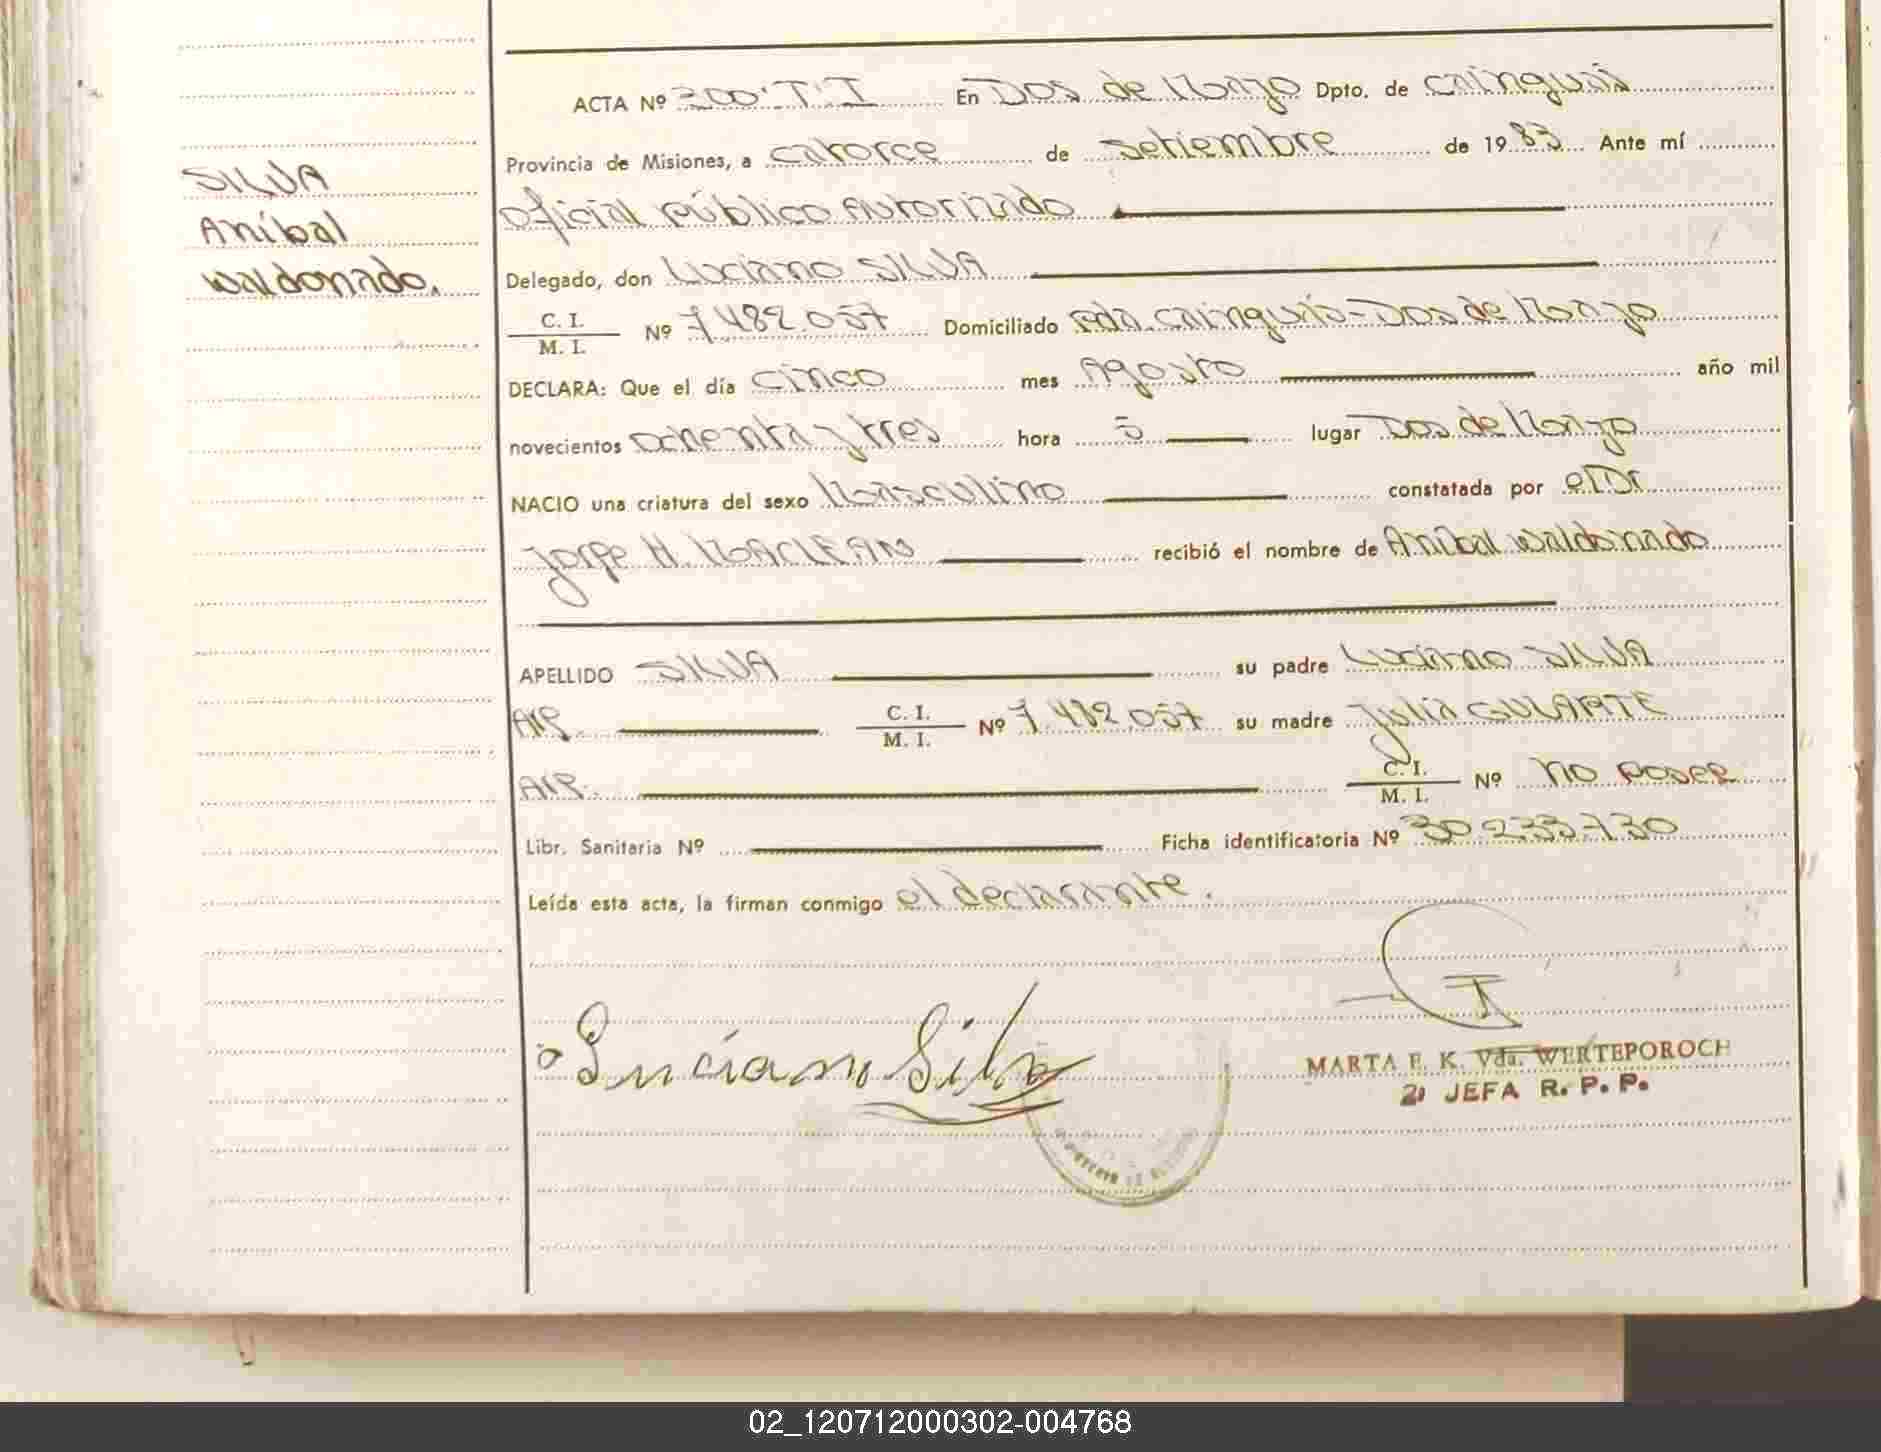 ACTA Nº 300·T·I En Dos de Mayo Dpto. de Cainguás
Provincia de Misiones, a catorce de setiembre de 1983 Ante mí
SILVA
Oficial público Autorizado
Aníbal
Delegado, don Luciano SILVA
Waldonado.
C. I.
M. I. Nº 7.482.057 Domiciliado Pda. Cainguás-Dos de Mayo
DECLARA: Que el día cinco mes Agosto año mil
novecientos ochenta y tres hora 5 lugar Dos de Mayo
NACIO una criatura del sexo Masculino constatada por el Dr
Jorge H. MACLEAN recibió el nombre de Aníbal Waldonado
APELLIDO SILVA su padre Luciano SILVA
Arg. C. I.
M. I. Nº 7.482.057 su madre Julia GULARTE
Arg. C. I.
M. I. Nº no posee
Libr. Sanitaria Nº Ficha identificatoria Nº 30.233.730
Leída esta acta, la firman conmigo el declarante.
Luciano Silva
MARTA E. K. Vda. WERTEPOROCH
2ª JEFA R. P. P.
02_120712000302-004768